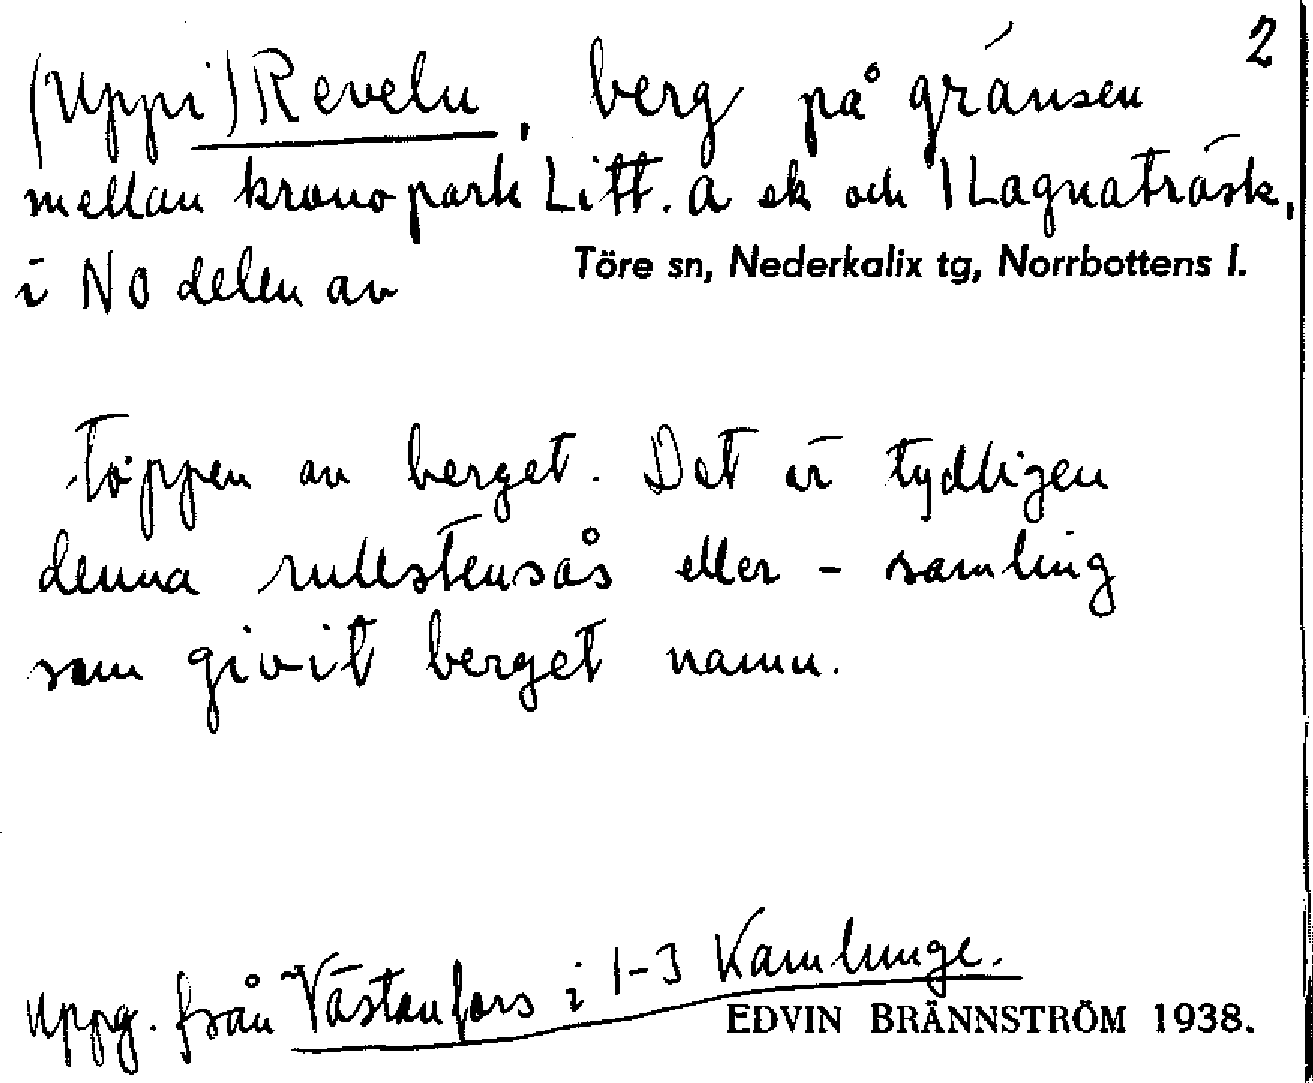 2
(Uppi) Reveln, berg på gränsen
mellan kronopark Litt. a ek och 1 Lagnaträsk,
i NO delen av Töre sn, Nederkalix tg, Norrbottens l.
toppen av berget. Det är tydligen
denna rullstensås eller - samling
som givit berget namn.
Uppg. från Västanfors i 1-3 Kamlunge.
EDVIN BRÄNNSTRÖM 1938.